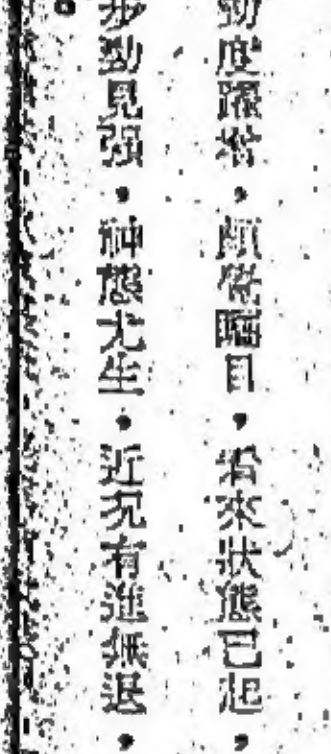 勁度躍增，頗覺矚目，看來狀態已起，
步勁見强，神態尤生，近況有進無退，